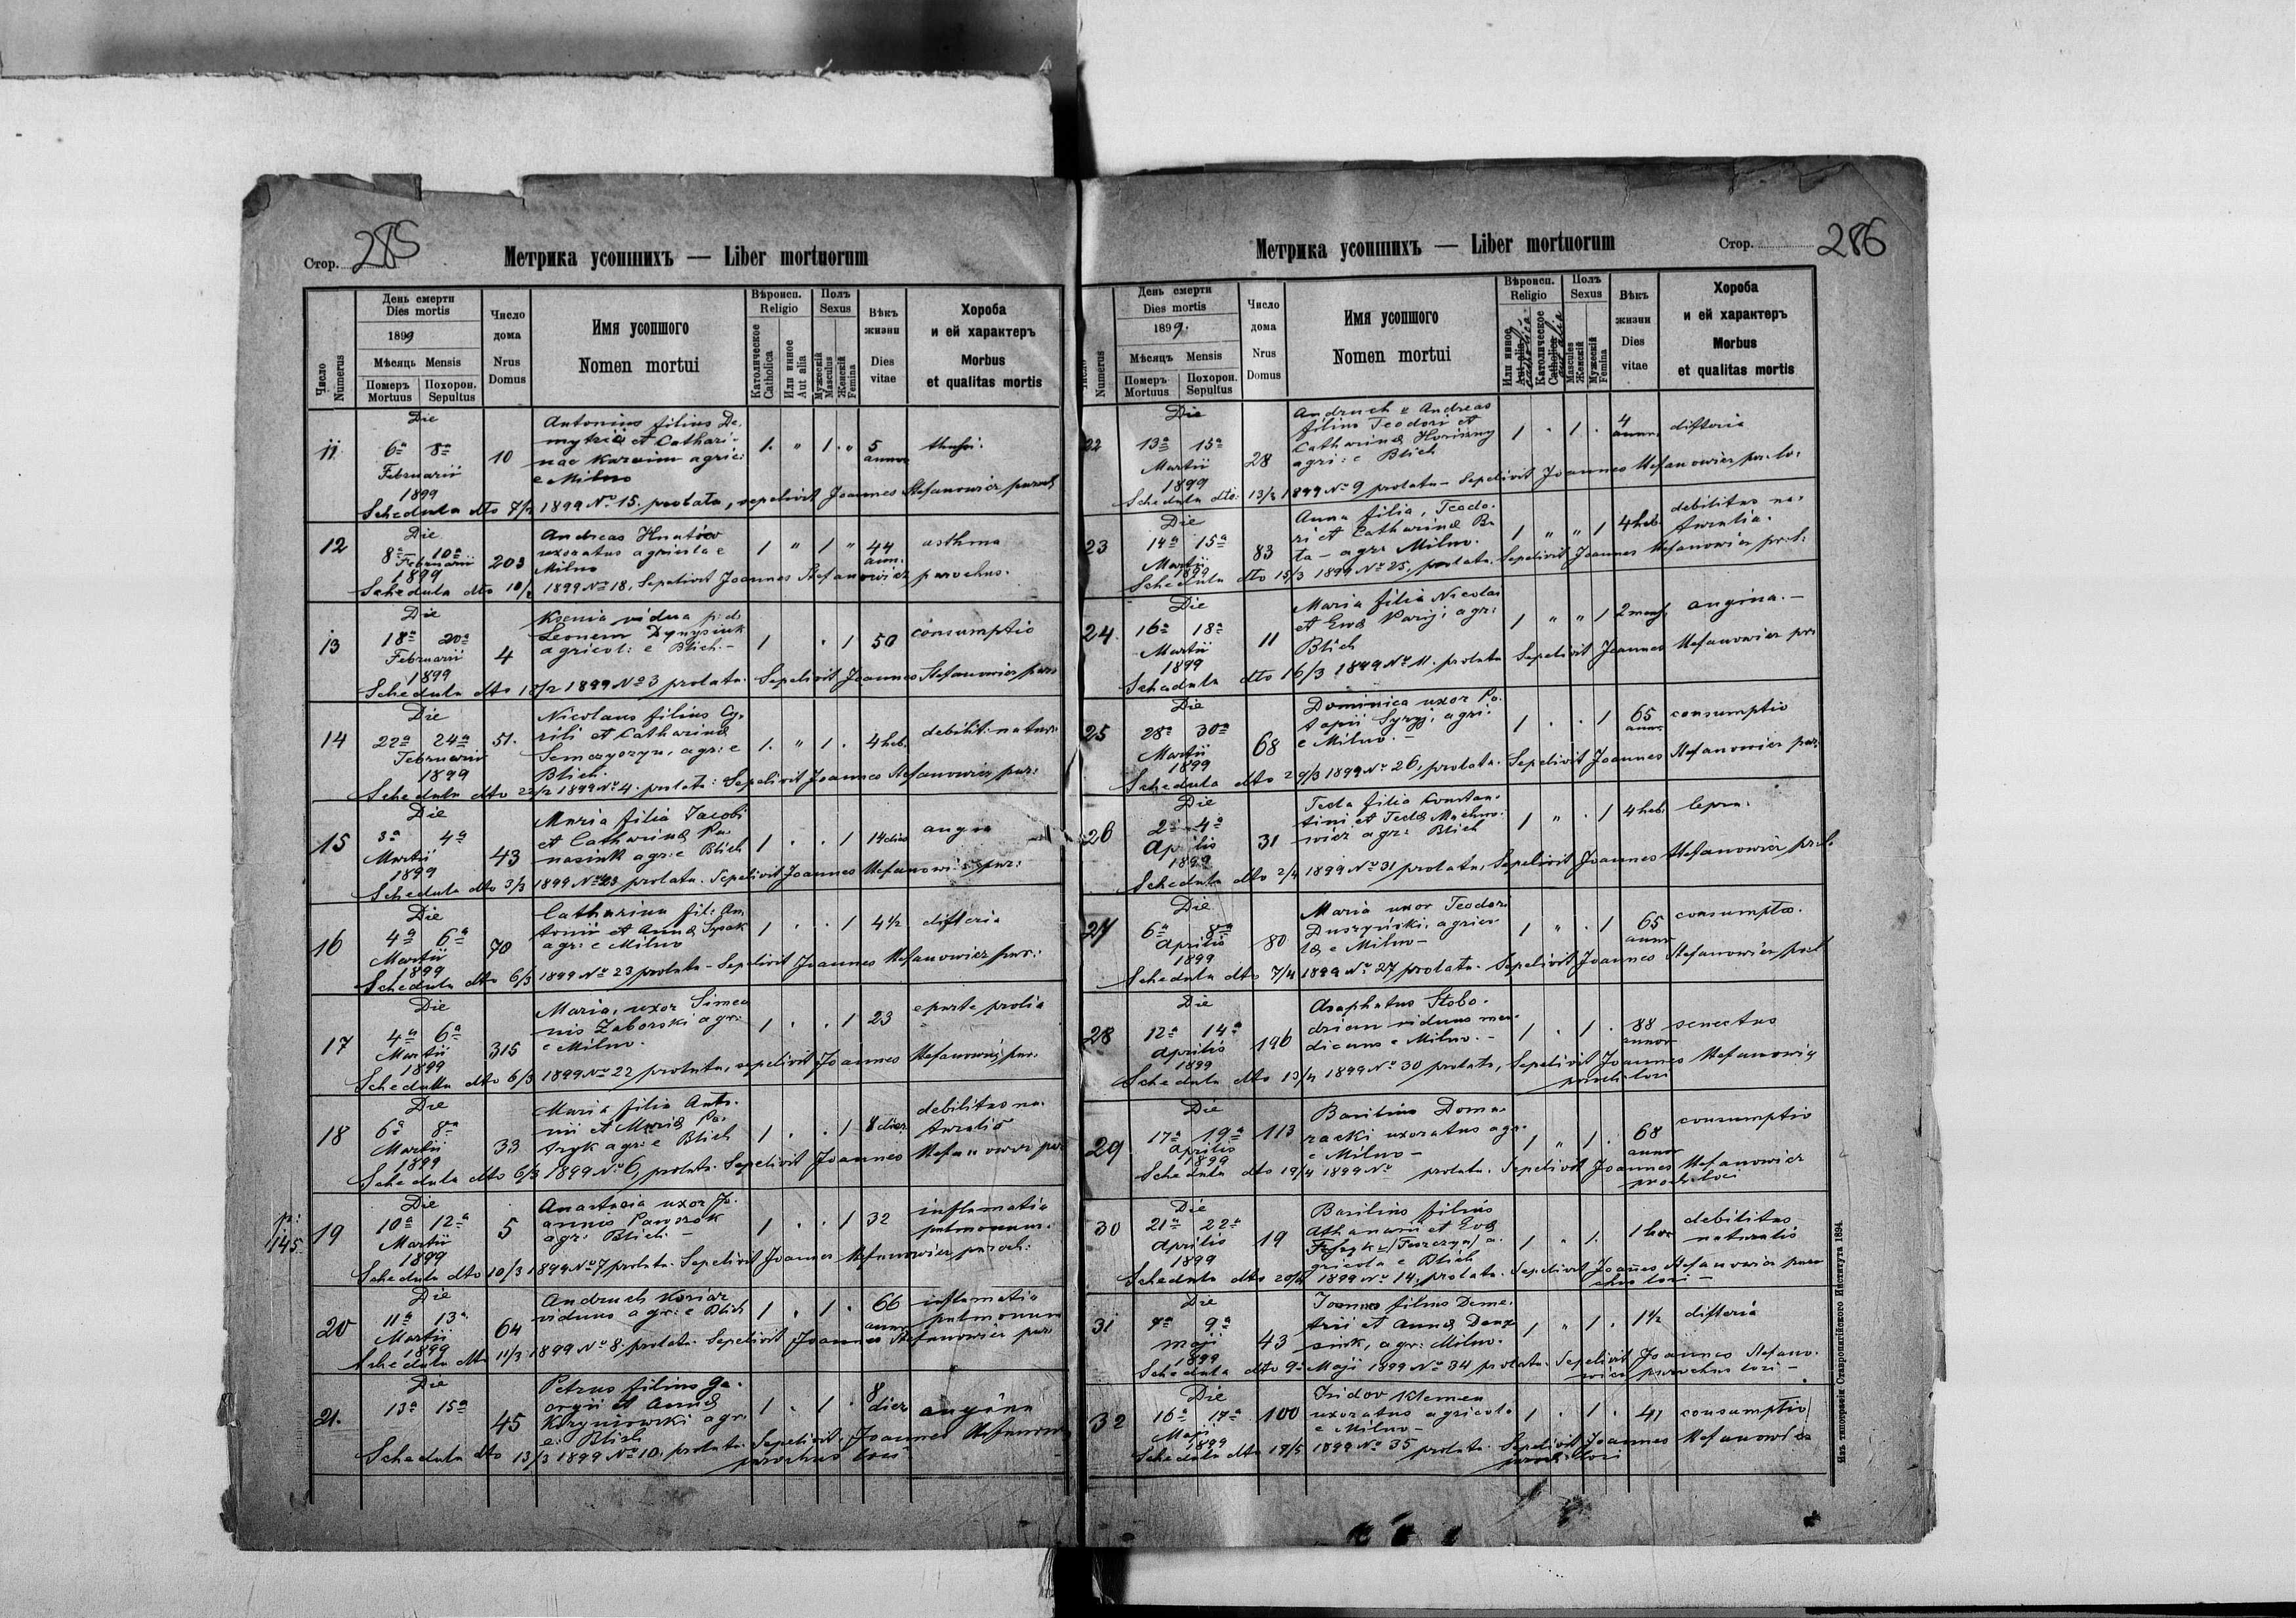 Стор. 285
Метрика усопшихъ — Liber mortuorum
Число Numerus
День смерти Dies mortis
1899
Мѣсяцъ Mensis
Померъ Mortuus
Похорон. Sepultus
Число дома Nrus Domus
Имя усопшого Nomen mortui
Вѣроисп. Religio
Католическое Catholica
Или инное Aut alia
Полъ Sexus
Мужескій Masculus
Женскій Femina
Вѣкъ жизни Dies vitae
Хороба и ей характеръ Morbus et qualitas mortis
Die
Antonius filius De-
11 6ª 8ª 10 mytrii et Cathari- 1. " 1. " 5
Februarii nae agric: annor
1899 e Milno
Schedula dto 7/2 1899 Nº 15. prolata, sepelivit Joannes Stefanowicz paroch
Die
12 8ª 10ª 203 Andreas Hnatów 1 " 1 " 44 asthma
Februarii uxoratus agricola e ann.
1899 Milno
Schedula dto 10/2 1899 Nº 18, Sepelivit Joannes Stefanowicz parochus.
Die
Ksenia vidua p: d:
13 18ª 20ª 4 Leonem Dynysiuk 1 . 1 50 consumptio
Februarii agricol: e Blich. –
1899
Schedula dto 1899 Nº 3 prolata. Sepelivit Joannes Stefanowicz par:
Die
Nicolaus filius Cy-
14 22ª 24ª 51. rili et Catharinæ 1. " 1. 4 heb. debilit: natur:
Februarii agr: e
1899 Blich.
Schedula dto 1899 Nº 4. prolata: Sepelivit Joannes Stefanowicz par:
Die
Maria filia Jacobi
15 3ª 4ª 43 et Catharinæ Pa- 1 . . 1 14 dies
Martii nasiuk agr: e Blich
1899
Schedula dto 3/3 1899 prolata. Sepelivit Joannes Stefanowicz par:
Die
Catharina fil: An-
16 4ª 6ª 70 tonii et Annæ Sysak 1 . . 1 4½ difteria
Martii agr: e Milno
1899
Schedula dto 6/3 1899 Nº 23 prolata – Sepelivit Joannes Stefanowicz par:
Die
Maria, uxor Simeo
17 4ª 6ª 315 nis Zaborski agr: 1 . . 1 23 e partu prolis
Martii e Milno.
1899
Schedula dto 6/3 1899 Nº 22 prolata, sepelivit Joannes Stefanowicz par:
Die
Maria filia Anto-
18 6ª 8ª 33 nii et Mariæ Pa- 1 . . 1 8 dier debilitas na-
Martii tryk agr: e Blich turalis
1899
Schedula dto 6/3 1899 Nº 6, prolata. Sepelivit Joannes Stefanowicz par
Die
p: 145
Anastasia uxor Jo-
19 10ª 12ª 5 annes 1 . . 1 32 inflamatio
Martii agr: Blich – pulmonum.
1899
Schedula dto 10/3 1899 Nº 7 prolata. Sepelivit Joannes Stefanowicz paroch:
Die
20 11ª 13ª 64 Andruch 1 . 1 . 66 inflamatio
Martii viduus agr: e Blich annor pulmonum
1899
Schedula dto 11/3 1899 Nº 8 prolata. Sepelivit Joannes Stefanowicz par:
Die
Petrus filius Ge-
21. 13ª 15ª 45 orgii et Annæ 1 . 1 . 8 dier angina
Krzyniowski agr:
e Blich
Schedula dto 13/3 1899 Nº 10, prolata. Sepelivit Joannes Stefanowicz
parochus loci
Метрика усопшихъ — Liber mortuorum
Стор. 286
Число Numerus
День смерти Dies mortis
1899.
Мѣсяцъ Mensis
Померъ Mortuus
Похорон. Sepultus
Число дома Nrus Domus
Имя усопшого Nomen mortui
Вѣроисп. Religio
Или инное Aut alia catholica
Католическое Catholica aut alia
Полъ Sexus
Masculus Женскій
Мужескій Femina
Вѣкъ жизни Dies vitae
Хороба и ей характеръ Morbus et qualitas mortis
Die
Andruch v Andreas
22 13ª 15ª 28 filius Teodori et 1 . 1 . 4 annor. difteria
Martii Catharinæ
1899 agri: e Blich
Schedula dto: 13/3 1899 Nº 9 prolata – Sepelivit Joannes Stefanowicz par: lo:
Die
Anna filia, Teodo-
23 14ª 15ª 83 ri et Catharinæ Ba 1 " " 1 4 heb. debilitas na-
Martii ta – agr: Milno. turalis.
1899
Schedula dto 15/3 1899 Nº 25, prolata, Sepelivit Joannes Stefanowicz par: l:
Die
Maria filia Nicolai
24. 16ª 18ª 11 et Evæ agr: 1 " " 1 2 mens. angina. –
Martii Blich
1899
Schedula dto 16/3 1899 Nº 11. prolata Sepelivit Joannes Stefanowicz par
Die
Dominica uxor Po-
25 28ª 30ª 68 tapii Syryj, agri: 1 . . 1 65 annor. consumptio
Martii e Milno. –
1899
Schedula dto 29/3 1899 Nº 26, prolata. Sepelivit Joannes Stefanowicz par:
Die
Tecla filia Constan-
26 2ª 4ª 31 tini et Teclæ Machno- 1 " . 1 4 heb. lepra.
Aprilis wicz agr: Blich
1899
Schedula dto 2/4 1899 Nº 31 prolata, Sepelivit Joannes Stefanowicz par: l:
Die
Maria uxor Teodori
27 6ª 8ª 80 Duszyński, agrico- 1 " . 1 65 annor consumptio.
Aprilis læ e Milno –
1899
Schedula dto 7/4 1899 Nº 27 prolata. Sepelivit Joannes Stefanowicz par: l:
Die
Asaphatus Słobo-
28 12ª 14ª 196 drian viduus men- 1 . 1 . 88 annor senectus
Aprilis dicans e Milno. –
1899
Schedula dto 13/4 1899 Nº 30 prolata, Sepelivit Joannes Stefanowicz
paroch: loci
Die
Basilius Doma-
29 17ª 19ª 113 racki uxoratus agr: 1 " 1 . 68 annor consumptio
Aprilis e Milno –
1899
Schedula dto 19/4 1899 Nº prolata. Sepelivit Joannes Stefanowicz
paroch: loci
Die
Basilius filius
30 21ª 22ª 19 Athanasii et Evæ 1 " 1. 1 hor debilitas
Aprilis a- naturalis
1899 gricola e Blich
Schedula dto 1899 Nº 14, prolata. Sepelivit Joannes Stefanowicz paro-
chus loci –
Die
Joannes filius Deme-
31 7ª 9ª 43 trii et Annæ 1 " 1 . 1½ difteria
Maji agr: Milno.
1899
Schedula dto 9ª Maji 1899 Nº 34 prolata. Sepelivit Joannes Stefano-
wicz parochus loci –
Die
Isidor Klemen
32 16ª 17ª 100 uxoratus agricola 1 . 1 . 41 consumptio
Maji e Milno –
1899
Schedula dto 1899 Nº 35 prolata. Sepelivit Joannes Stefanowicz
paroch: loci
Изъ типографіи Ставропигійского Института 1894.